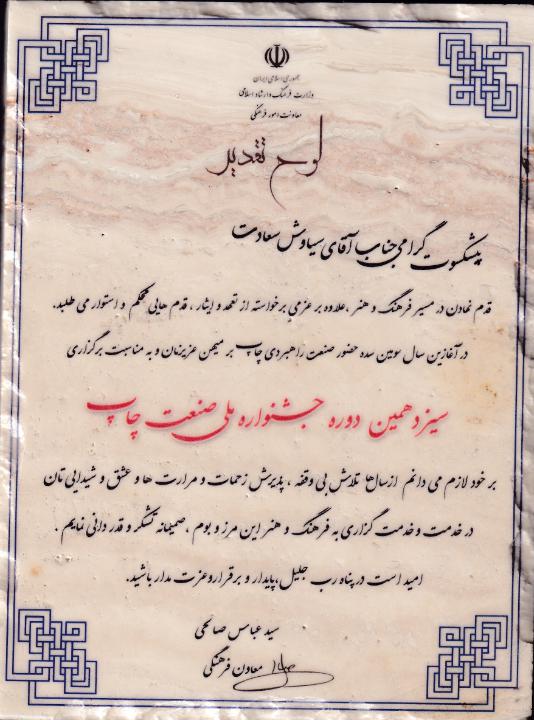 جمهوری اسلامی ایران
وزارت فرهنگ و ارشاد اسلامی
معاونت امور فرهنگی
لوح تقدیر
پیشکسوت گرامی جناب آقای سیاوش سعادت
قدم نهادن در مسیر فرهنگ و هنر ،علاوه بر عزمی برخاسته از تعهد و ایثار ، قدم هایی محکم و استوار می طلبد.
در آغازین سال سومین سده حضور صنعت راهبردی چاپ بر میهن عزیزمان و به مناسبت برگزاری
سیزدهمین دوره جشنواره ملی صنعت چاپ
بر خود لازم می دانم از سال‌ها تلاش بی وقفه ، پذیرش زحمات و مرارت ها و عشق و شیدایی تان
در خدمت و خدمت گزاری به فرهنگ و هنر این مرز و بوم ، صمیمانه تشکر و قدردانی نمایم .
امید است در پناه رب جلیل ،پایدار و برقرار و عزت مدار باشید.
سید عباس صالحی
معاون فرهنگی